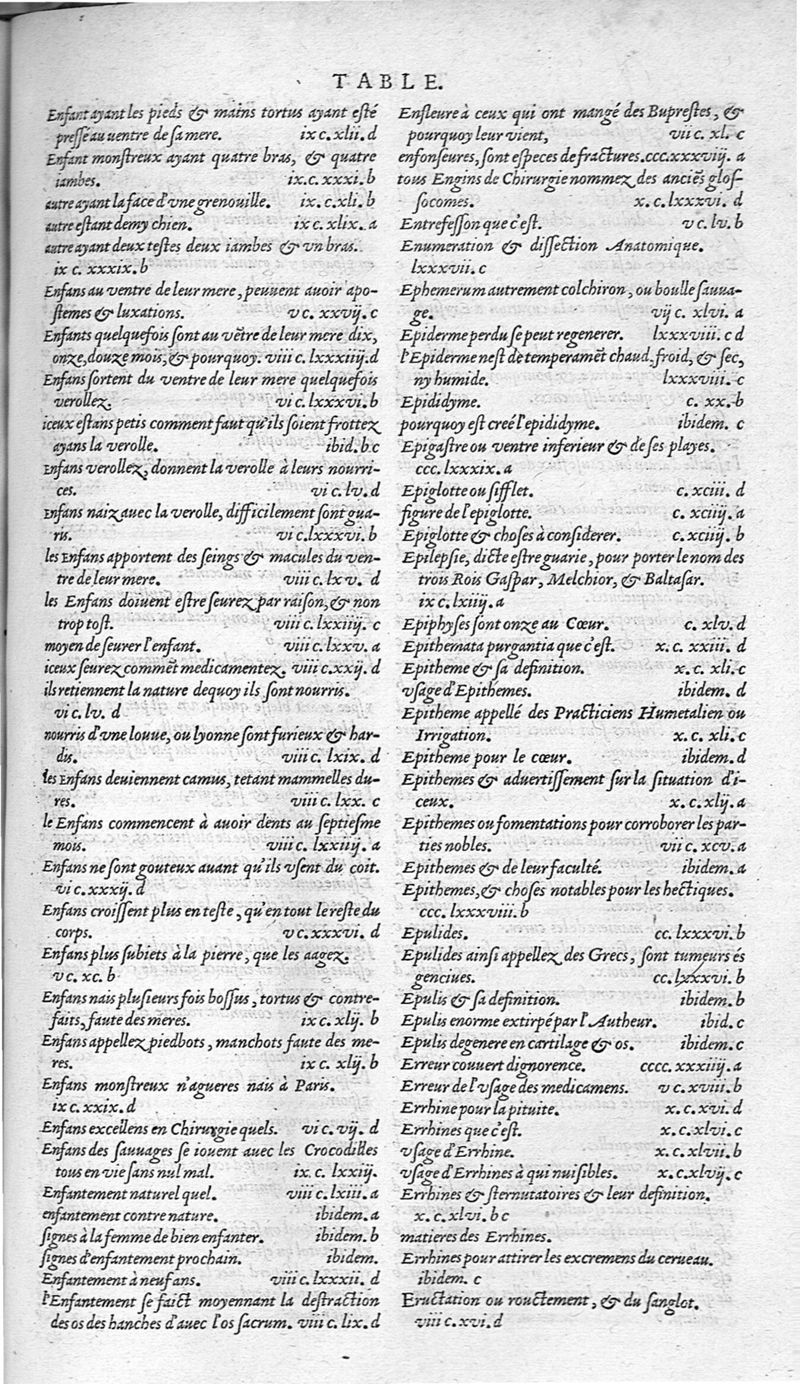 TABLE.
Enfant ayant les pieds & mains tortus ayant esté
pressé au ventre de sa mere. ix c. xlii. d
Enfant monstreux ayant quatre bras, & quatre
iambes. ix. c. xxxi. b
autre ayant la face d'vne grenouille. ix. c. xli. b
autre estant demy chien. ix c. xlix. a
autre ayant deux testes deux iambes & vn bras.
ix c. xxxix. b
Enfans au ventre de leur mere, peuuent auoir apo-
stemes & luxations. v c. xxvij. c
Enfants quelquefois sont au vẽtre de leur mere dix,
onze, douze mois, & pourquoy. viii c. lxxxiiij. d
Enfans sortent du ventre de leur mere quelquefois
verollez. vi c. lxxxvi. b
iceux estans petis comment faut qu'ils soient frottez
ayans la verolle. ibid. b c
Enfans verollez, donnent la verolle à leurs nourri-
ces. vi c. lv. d
Enfans naiz auec la verolle, difficilement sont gua-
ris. vi c. lxxxvi. b
les Enfans apportent des seings & macules du ven-
tre de leur mere. viii c. lxv. d
les Enfans doiuent estre seurez par raison, & non
trop tost. viii c. lxxiiij. c
moyen de seurer l'enfant. viii c. lxxv. a
iceux seurez commẽt medicamentez. viii c. xxij. d
ils retiennent la nature dequoy ils sont nourris.
vi c. lv. d
nourris d'vne louue, ou lyonne sont furieux & har-
dis. viii c. lxix. d
les Enfans deuiennent camus, tetant mammelles du-
res. viii c. lxx. c
le Enfans commencent à auoir dents au septiesme
mois. viii c. lxxiiij. a
Enfans ne sont gouteux auant qu'ils vsent du coit.
vi c. xxxij. d
Enfans croissent plus en teste, qu'en tout le reste du
corps. v c. xxxvi. d
Enfans plus subiets à la pierre, que les aagez.
v c. xc. b
Enfans nais plusieurs fois bossus, tortus & contre-
faits, faute des meres. ix c. xlij. b
Enfans appellez piedbots, manchots faute des me-
res. ix c. xlij. b
Enfans monstreux n'agueres nais à Paris.
ix c. xxix. d
Enfans excellens en Chirurgie quels. vi c. vij. d
Enfans des sauuages se iouent auec les Crocodilles
tous en vie sans nul mal. ix. c. lxxiij.
Enfantement naturel quel. viii c. lxiii. a
enfantement contre nature. ibidem. a
signes à la femme de bien enfanter. ibidem. b
signes d'enfantement prochain. ibidem.
Enfantement à neuf ans. viii c. lxxxii. d
l'Enfantement se faict moyennant la destraction
des os des hanches d'auec l'os sacrum. viii c. lix. d
Enfleure à ceux qui ont mangé des Buprestes, &
pourquoy leur vient, vii c. xl. c
enfonseures, sont especes de fractures. ccc. xxxviij. a
tous Engins de Chirurgie nommez des anciẽs glos-
socomes. x. c. lxxxvi. d
Entrefesson que c'est. v c. lv. b
Enumeration & dissection Anatomique.
lxxxvii. c
Ephemerum autrement colchiron, ou boulle sauua-
ge. vij c. xlvi. a
Epiderme perdu se peut regenerer. lxxxviii. c d
l'Epiderme nest de temperamẽt chaud, froid, & sec,
ny humide. lxxxviii. c
Epididyme. c. xx. b
pourquoy est creé l'epididyme. ibidem. c
Epigastre ou ventre inferieur & de ses playes.
ccc. lxxxix. a
Epiglotte ou sifflet. c. xciii. d
figure de l'epiglotte. c. xciiij. a
Epiglotte & choses à considerer. c. xciiij. b
Epilepsie, dicte estre guarie, pour porter le nom des
trois Rois Gaspar, Melchior, & Baltasar.
ix c. lxiiij. a
Epiphyses sont onze au Cœur. c. xlv. d
Epithemata purgantia que c'est. x. c. xxiii. d
Epitheme & sa definition. x. c. xli. c
vsage d'Epithemes. ibidem. d
Epitheme appellé des Practiciens Humetalien ou
Irrigation. x. c. xli. c
Epitheme pour le cœur. ibidem. d
Epithemes & aduertissement sur la situation d'i-
ceux. x. c. xlij. a
Epithemes ou fomentations pour corroborer les par-
ties nobles. vii c. xcv. a
Epithemes & de leur faculté. ibidem. a
Epithemes, & choses notables pour les hectiques.
ccc. lxxxviii. b
Epulides. cc. lxxxvi. b
Epulides ainsi appellez des Grecs, sont tumeurs és
genciues. cc. lxxxvi. b
Epulis & sa definition. ibidem. b
Epulis enorme extirpé par l'Autheur. ibid. c
Epulis degenere en cartilage & os. ibidem. c
Erreur couuert dignorence. cccc. xxxiiij. a
Erreur de l'vsage des medicamens. v c. xviii. b
Errhine pour la pituite. x. c. xvi. d
Errhines que c'est. x. c. xlvi. c
vsage d'Errhine. x. c. xlvii. b
vsage d'Errhines à qui nuisibles. x. c. xlvij. c
Errhines & sternutatoires & leur definition.
x. c. xlvi. b c
matieres des Errhines.
Errhines pour attirer les excremens du cerueau.
ibidem. c
Eructation ou rouctement, & du sanglot.
viii c. xvi. d